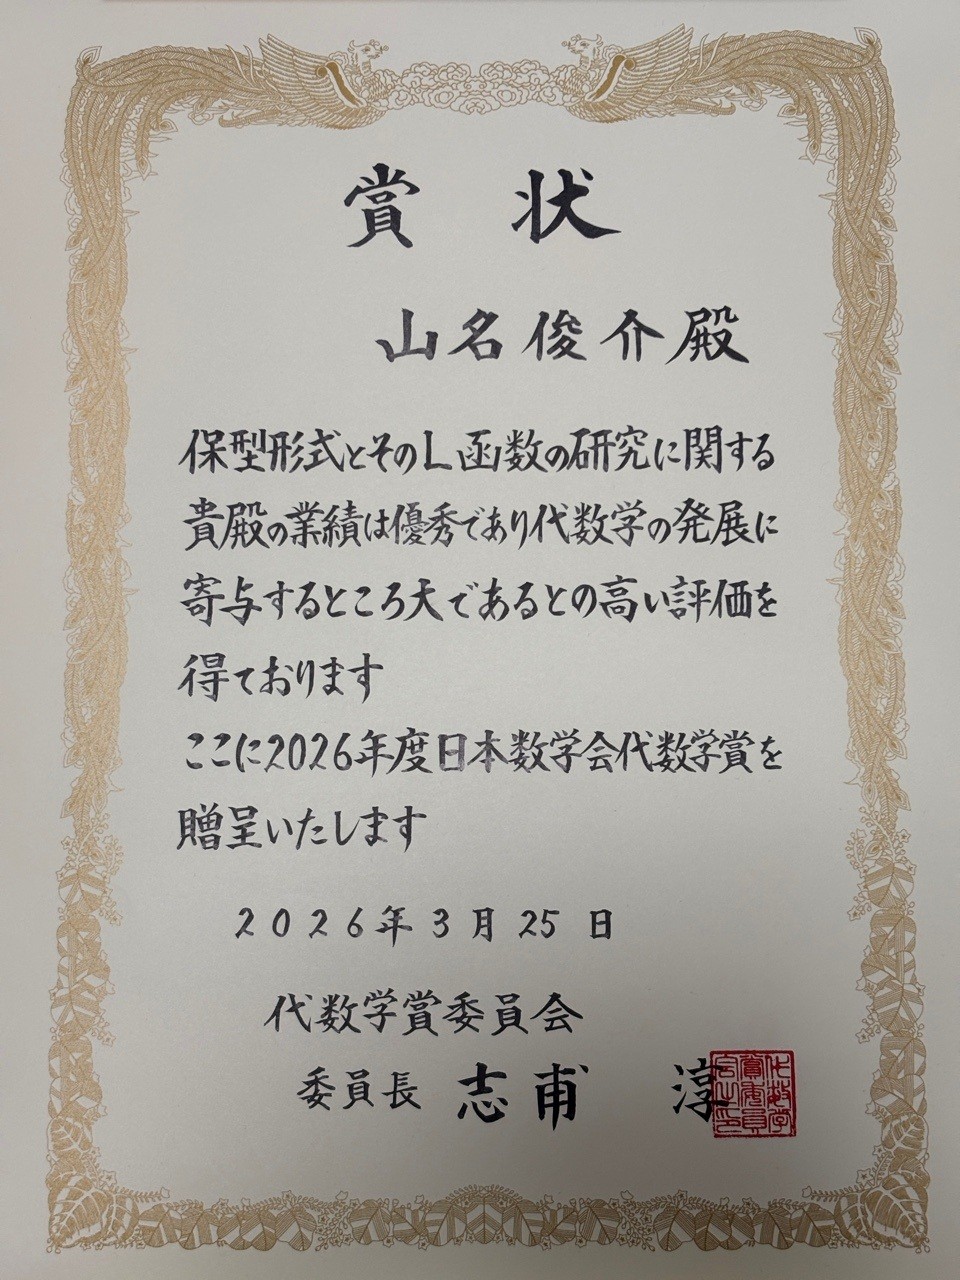 賞状
山名俊介殿
保型形式とそのL函数の研究に関する
貴殿の業績は優秀であり代数学の発展に
寄与するところ大であるとの高い評価を
得ております
ここに2026年度日本数学会代数学賞を
贈呈いたします
2026年3月25日
代数学賞委員会
委員長 志甫 淳
代数学
賞委員
会之印